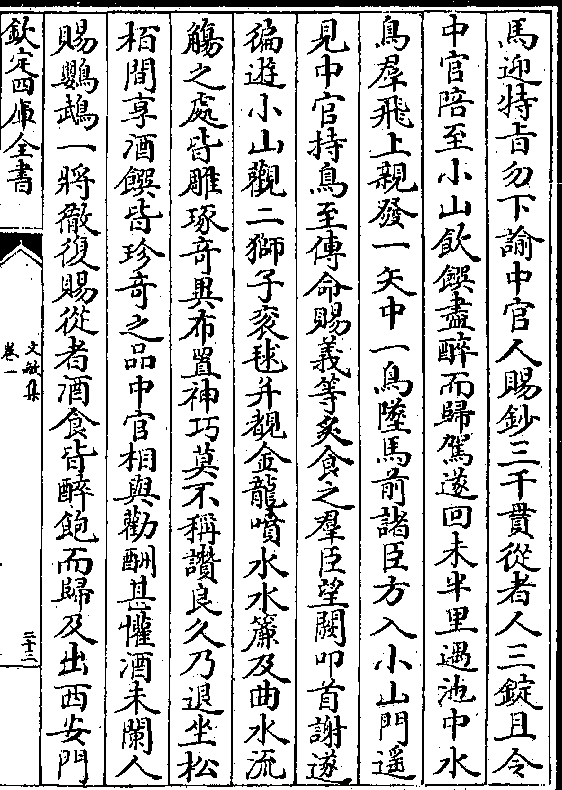 馬迎特㫖勿下諭中官人賜鈔三千貫從者人三錠且令
中官陪至小山飲饌盡醉而歸駕遂回未半里遇池中水
鳥羣飛上親發一矢中一鳥墜馬前諸臣方入小山門遥
見中官持鳥至傳命賜義等炙食之羣臣望闕叩首謝遂
徧遊小山觀二獅子衮毬并觀金龍噴水水簾及曲水流
觴之處皆雕琢竒異布置神巧莫不稱讚良久乃退坐松
栢間享酒饌皆珍竒之品中官相與勸酬甚懽酒未闌人
賜鸚鵡一將徹復賜從者酒食皆醉飽而歸及出西安門
欽定四庫全書
文敏集
卷一
三十三